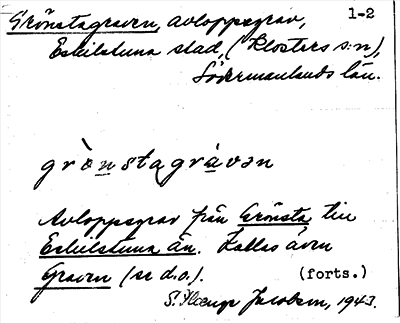 Grönstagraven, avloppsgrav, 1-2
Eskilstuna stad, (Klosters s:n),
Södermanlands län.
grò̀nstagràvən
Avloppsgrav från Grönsta till
Eskilstuna ån. Kallas även
Graven (se d.o.). (forts.)
S. Jacobson, 1943.